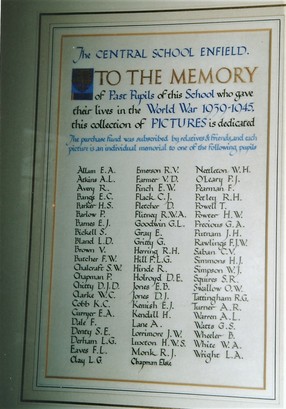 The CENTRAL SCHOOL ENFIELD.
TO THE MEMORY
of Past Pupils of this School who gave
their lives in the World War 1939-1945.
this collection of PICTURES is dedicated
The purchase fund was subscribed by relatives & friends, and each
picture is an individual memorial to one of the following pupils
Allum E.A.
Atkins A.L.
Avery R.
Bangs E.C.
Barker H.S.
Barlow P.
Barnes E.J.
Bicknell S.
Bland L.D.
Brown V.
Butcher F.W.
Chalcraft S.W.
Chapman P.
Chitty D.J.D.
Clarke W.C.
Cobb K.C.
Curryer E.A.
Dale F.
Denty S.E.
Derham L.G.
Eaves F.L.
Clay L.G
Emerson R.V.
Farmer V.D.
Finch E.W.
Flack C.J.
Fletcher D.
Goodwin G.L.
Gray E.
Gritty G.
Herring R.H.
Hill P.L.G.
Hinde R.
Holroyd D.E.
Jones E.B.
Jones D.J.
Kendall H.
Lane A.
Lorrimore J.W.
Luxton H.W.S.
Monk R.J.
Chapman Elsie
Nettleton W.H.
O'Leary P.J.
Pearman F.
Perley R.H.
Powell T.
Powter H.W.
Precious G.A.
Putnam J.H.
Rawlings F.J.W.
Saban C.V.
Simmons H.J.
Simpson W.J.
Squires S.R.
Swallow O.W.
Tattingham R.G.
Turner A.R.
Warren A.L.
Watts G.S.
Wheeler B.
White W.A.
Wright L.A.